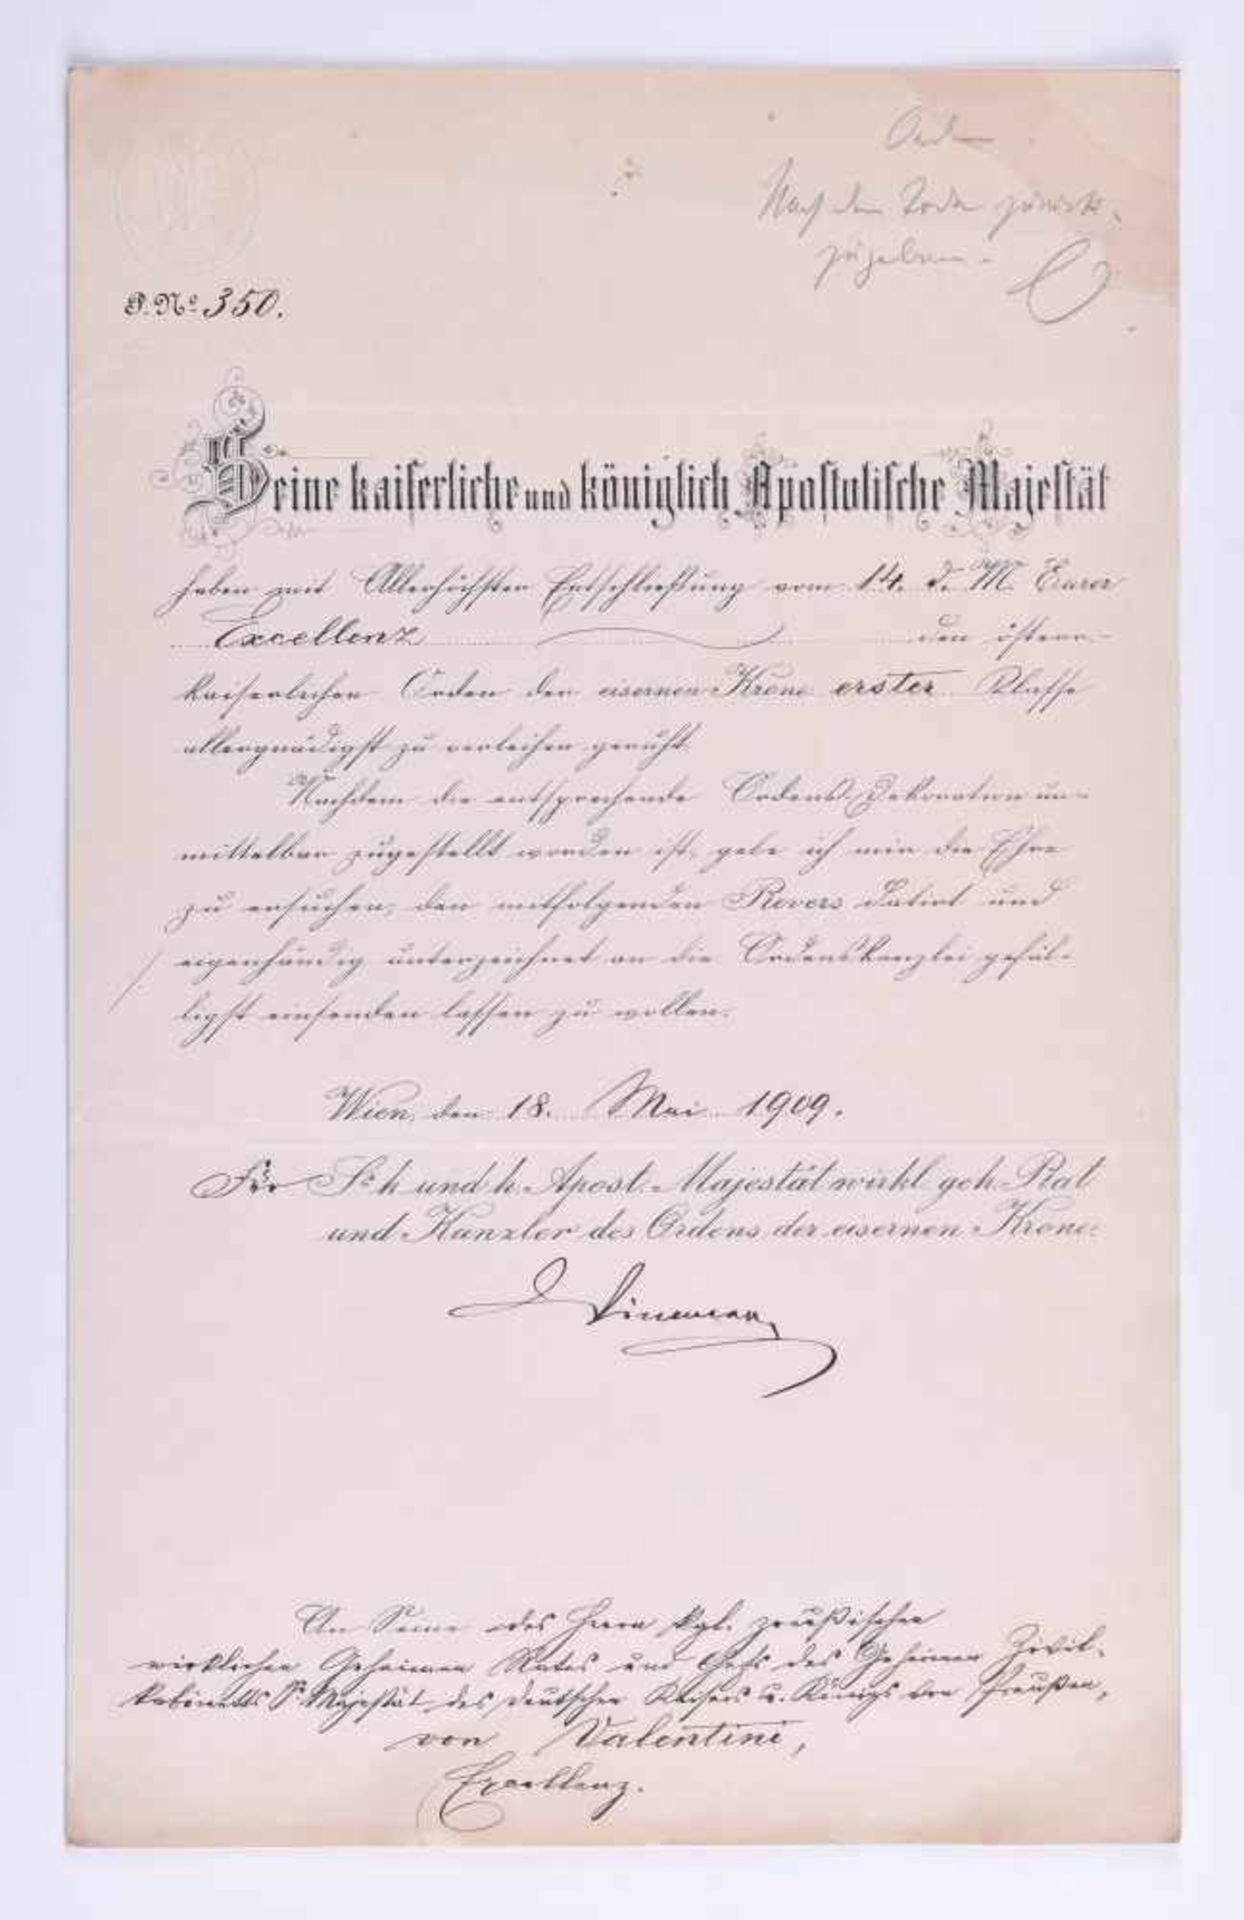 Orden
Nach dem Tode zurück-
zugeben.
P. No. 350.
Seine kaiserliche und königlich Apostolische Majestät
haben mit Allerhöchster Entschließung vom 14. d. M. Eurer
Excellenz den österr.-
kaiserlichen Orden der eisernen Krone erster Klasse
allergnädigst zu verleihen geruht.
Nachdem die entsprechende Ordens-Dekoration un-
mittelbar zugestellt worden ist, gebe ich mir die Ehre
zu ersuchen, den mitfolgenden Revers datirt und
eigenhändig unterzeichnet an die Ordenskanzlei gefäl-
ligst einsenden lassen zu wollen.
Wien, den 18. Mai 1909.
Für Sr. k. und k. Apost. Majestät wirkl. geh. Rat
und Kanzler des Ordens der eisernen Krone:
An Seine des Herrn kgl. preußischen
wirklichen Geheimen Rates und Chefs des Geheimen Zivil-
kabinetts Sr. Majestät des deutschen Kaisers u. Königs von Preußen,
von Valentini,
Excellenz.